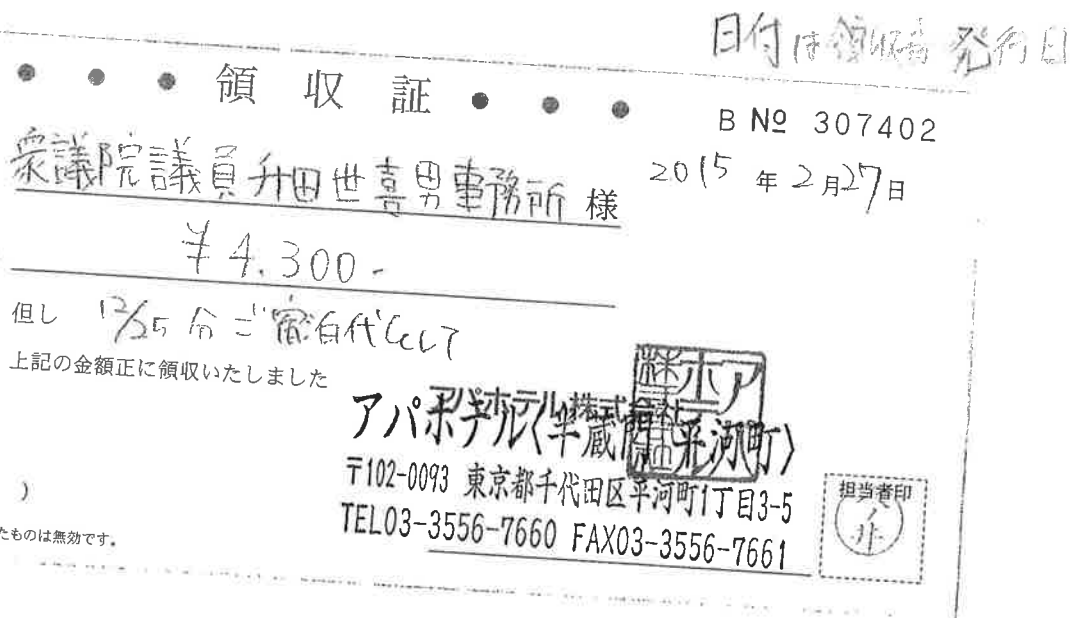 日付は領収書発行日
・・・領収証・・・
B № 307402
衆議院議員升田世喜男事務所 様
2015 年 2 月 27 日
¥4.300-
但し 12/25 分ご宿泊代として
上記の金額正に領収いたしました
アパホテル株式会社
アパホテル〈半蔵門 平河町〉
〒102-0093 東京都千代田区平河町1丁目3-5
TEL03-3556-7660 FAX03-3556-7661
担当者印
)
たものは無効です。